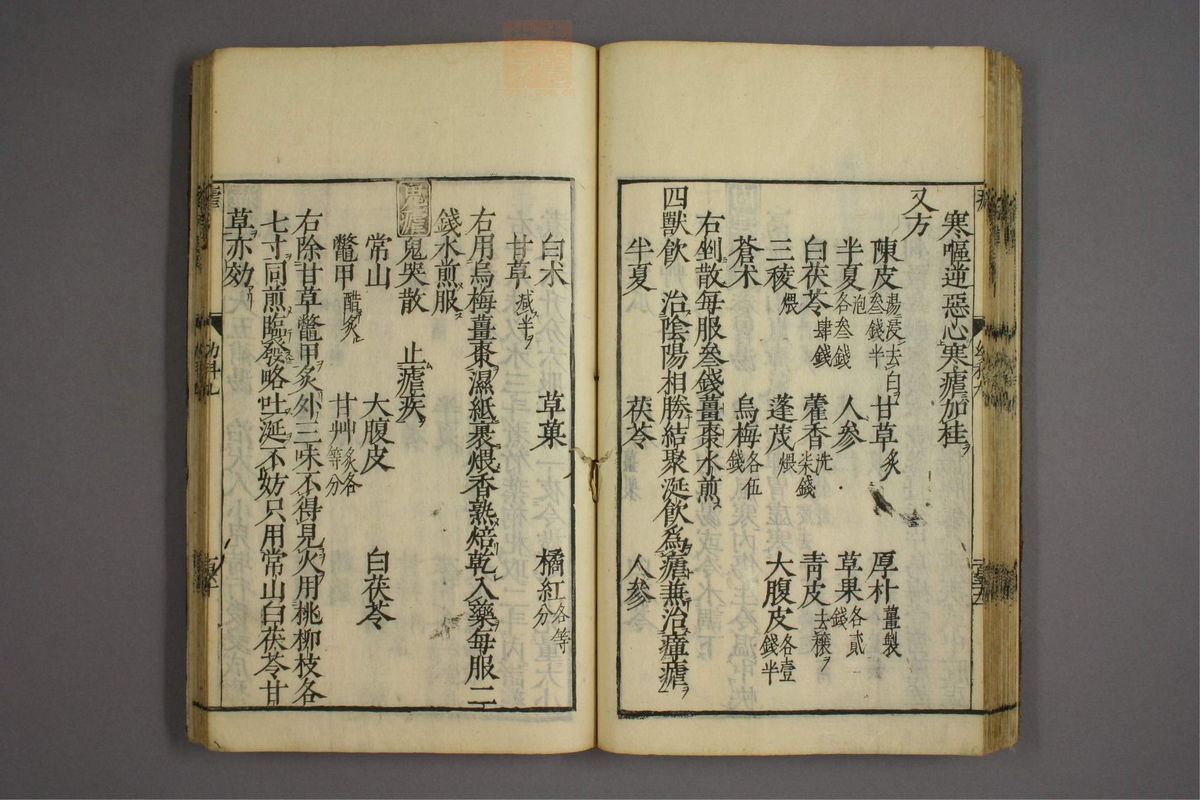 寒嘔逆惡心寒瘧加桂
又方
陳皮湯浸去白叁錢半 甘草炙 厚朴薑製
半夏泡各叁錢 人參 草果各貳錢
白茯苓肆錢 藿香洗柒錢 靑皮去穰
三稜煨 蓬茂煨 大腹皮各壹錢半
蒼朮 烏梅各伍錢
右剉散每服叁錢薑棗水煎
四獸飲 治陰陽相勝結聚涎飲爲瘧兼治瘴瘧
半夏 茯苓 人參
白朮 草菓 橘紅各等分
甘草減半
右用烏梅薑棗濕紙裹煨香熟焙乾入藥每服二
錢水煎服
鬼瘧 鬼哭散 止瘧疾
常山 大腹皮 白茯苓
鱉甲醋炙 甘艸炙各等分
右除甘草鱉甲炙外三味不得見火用桃柳枝各
七寸同煎臨發略吐涎不妨只用常山白茯苓甘
草亦効